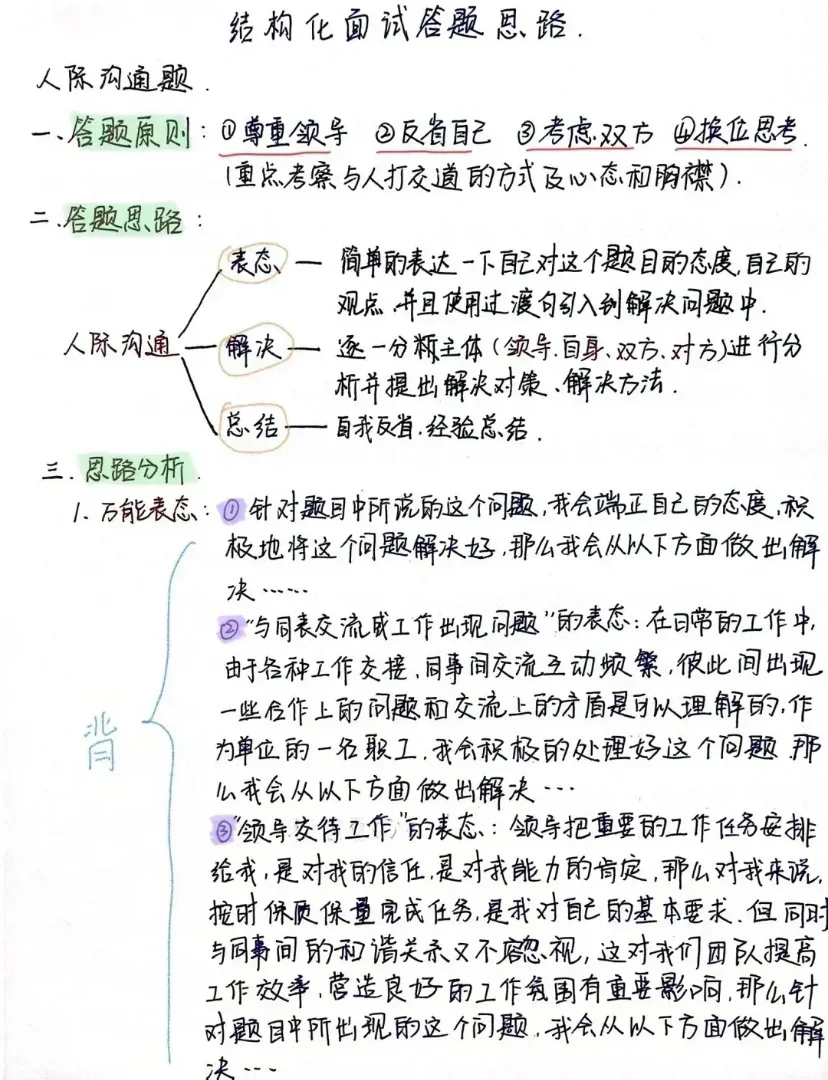 结构化面试答题思路.
人际沟通题.
一、答题原则：①尊重领导 ②反省自己 ③考虑双方 ④换位思考.
(重点考察与人打交道的方式及心态和胸襟).
二、答题思路：
表态 — 简单的表达一下自己对这个题目的态度,自己的
观点,并且使用过渡句引入到解决问题中.
人际沟通 — 解决 — 逐一分析主体(领导.自身、双方、对方)进行分
析并提出解决对策、解决方法.
总结 — 自我反省.经验总结.
三.思路分析.
1.万能表态：①针对题目中所说的这个问题,我会端正自己的态度,积
极地将这个问题解决好,那么我会从以下方面做出解
决……
②"与同表交流或工作出现问题"的表态：在日常的工作中,
由于各种工作交接,同事间交流互动频繁,彼此间出现
一些合作上的问题和交流上的矛盾是可以理解的,作
为单位的一名职工,我会积极的处理好这个问题,那
么我会从以下方面做出解决…
背
③"领导交待工作"的表态：领导把重要的工作任务安排
给我,是对我的信任,是对我能力的肯定,那么对我来说,
按时保质保量完成任务,是我对自己的基本要求.但同时
与同事间的和谐关系又不容忽视,这对我们团队提高
工作效率,营造良好的工作氛围有重要影响,那么针
对题目中所出现的这个问题,我会从以下方面做出解
决…